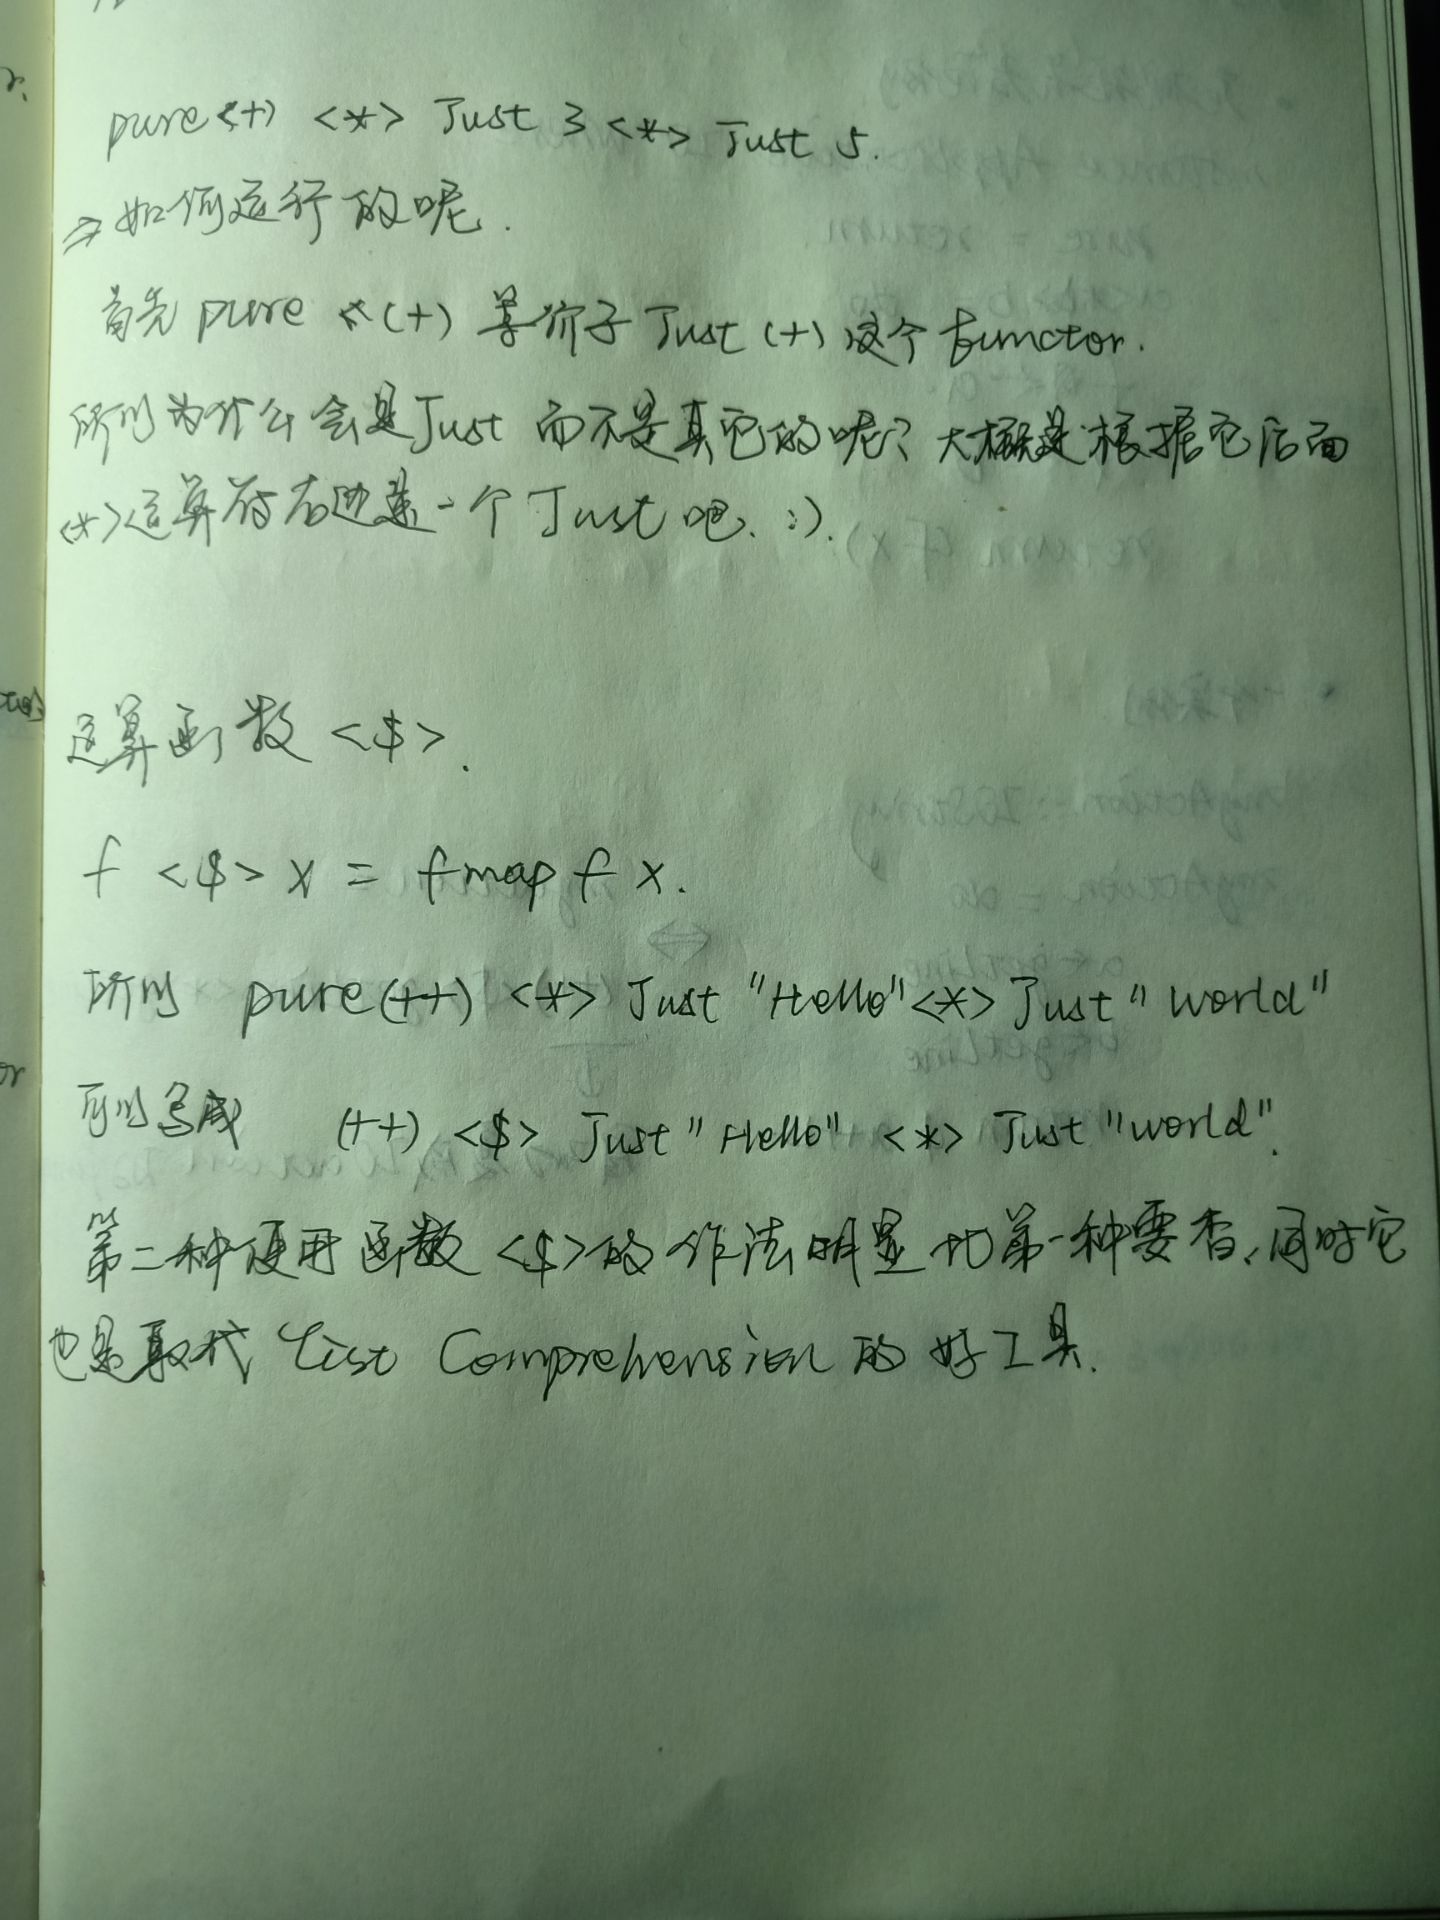 pure (+) <*> Just 3 <*> Just 5.
⇒ 如何运行的呢.
首先 pure (+) 等价于 Just (+) 这个 functor.
所以为什么会是 Just 而不是其它的呢? 大概是根据它后面
<*>运算符右边是一个 Just 吧. :).
运算函数 <$>.
f <$> x = fmap f x.
所以 pure (++) <*> Just "Hello" <*> Just "world"
可以写成 (++) <$> Just "Hello" <*> Just "world".
第二种使用函数 <$> 的作法明显比第一种要香, 同时它
也是取代 List Comprehension 的好工具.